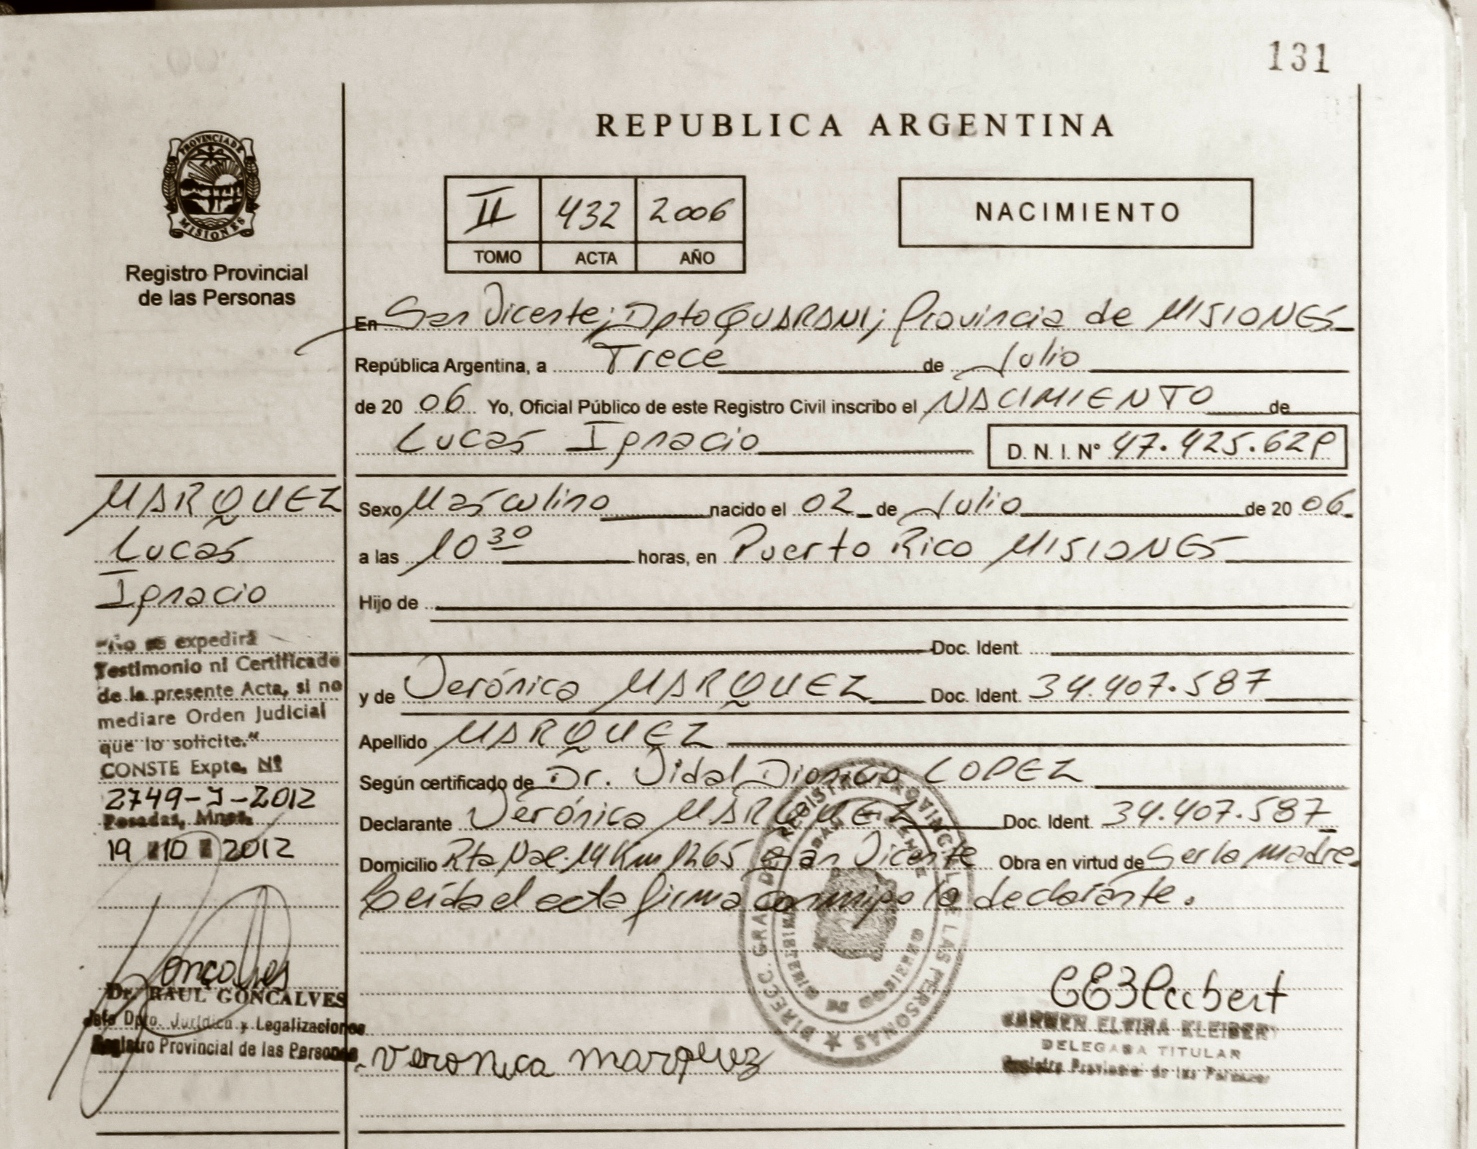 131
REPUBLICA ARGENTINA
PROVINCIA DE
MISIONES
Registro Provincial
de las Personas
II 432 2006
TOMO ACTA AÑO
NACIMIENTO
En San Vicente; Dpto GUARANI; Provincia de MISIONES
República Argentina, a Trece de Julio
de 2006 Yo, Oficial Público de este Registro Civil inscribo el NACIMIENTO de
Lucas Ignacio D.N.I. Nº 47.425.62
MARQUEZ
Lucas
Ignacio
"No se expedirá
Testimonio ni Certificado
de la presente Acta, si no
mediare Orden Judicial
que lo solicite."
CONSTE Expte. Nº
2749-J-2012
Posadas, Mnes.
19 10 2012
Goncalves
Dr. RAUL GONCALVES
Jefe Dpto. Jurídica y Legalizaciones
Registro Provincial de las Personas
Sexo Masculino nacido el 02 de Julio de 2006
a las 10 30 horas, en Puerto Rico MISIONES
Hijo de
Doc. Ident.
y de Verónica MARQUEZ Doc. Ident. 34.407.587
Apellido MARQUEZ
Según certificado de Dr. Vidal Dionicio LOPEZ
Declarante Verónica MARQUEZ Doc. Ident. 34.407.587
Domicilio Rta Nac. 14 Km 1265 San Vicente Obra en virtud de Ser la madre.
Leida el acta firma conmigo la declarante.
DIRECC. GRAL. DE REGISTRO PROVINCIAL DE LAS PERSONAS
CARMEN ELVIRA KLEIBERT
DELEGADA TITULAR
Registro Provincial de las Personas
veronica marquez